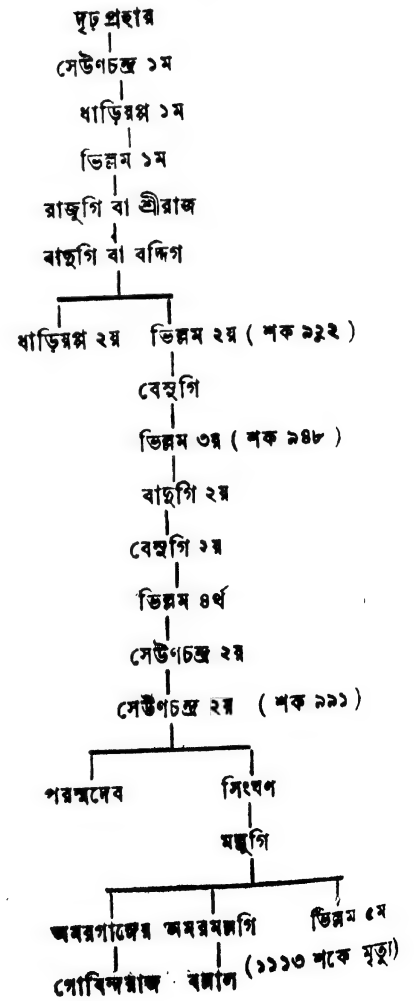 দৃঢ়প্রহার
সেউণচন্দ্র ১ম
ধাড়িয়প্প ১ম
ভিল্লম ১ম
রাজুগি বা শ্রীরাজ
বাদুগি বা বদ্দিগ
ধাড়িয়প্প ২য় ভিল্লম ২য় ( শক ৯২২ )
বেসুগি
ভিল্লম ৩য় ( শক ৯৪৮ )
বাদুগি ২য়
বেসুগি ২য়
ভিল্লম ৪র্থ
সেউণচন্দ্র ২য়
সেউণচন্দ্র ২য় ( শক ৯৯১ )
পরম্মদেব সিংঘণ
মল্লুগি
অমরগাঙ্গেয় অমরমল্লগি ভিল্লম ৫ম
গোবিন্দরাজ বল্লাল (১১১৩ শকে মৃত্যু)